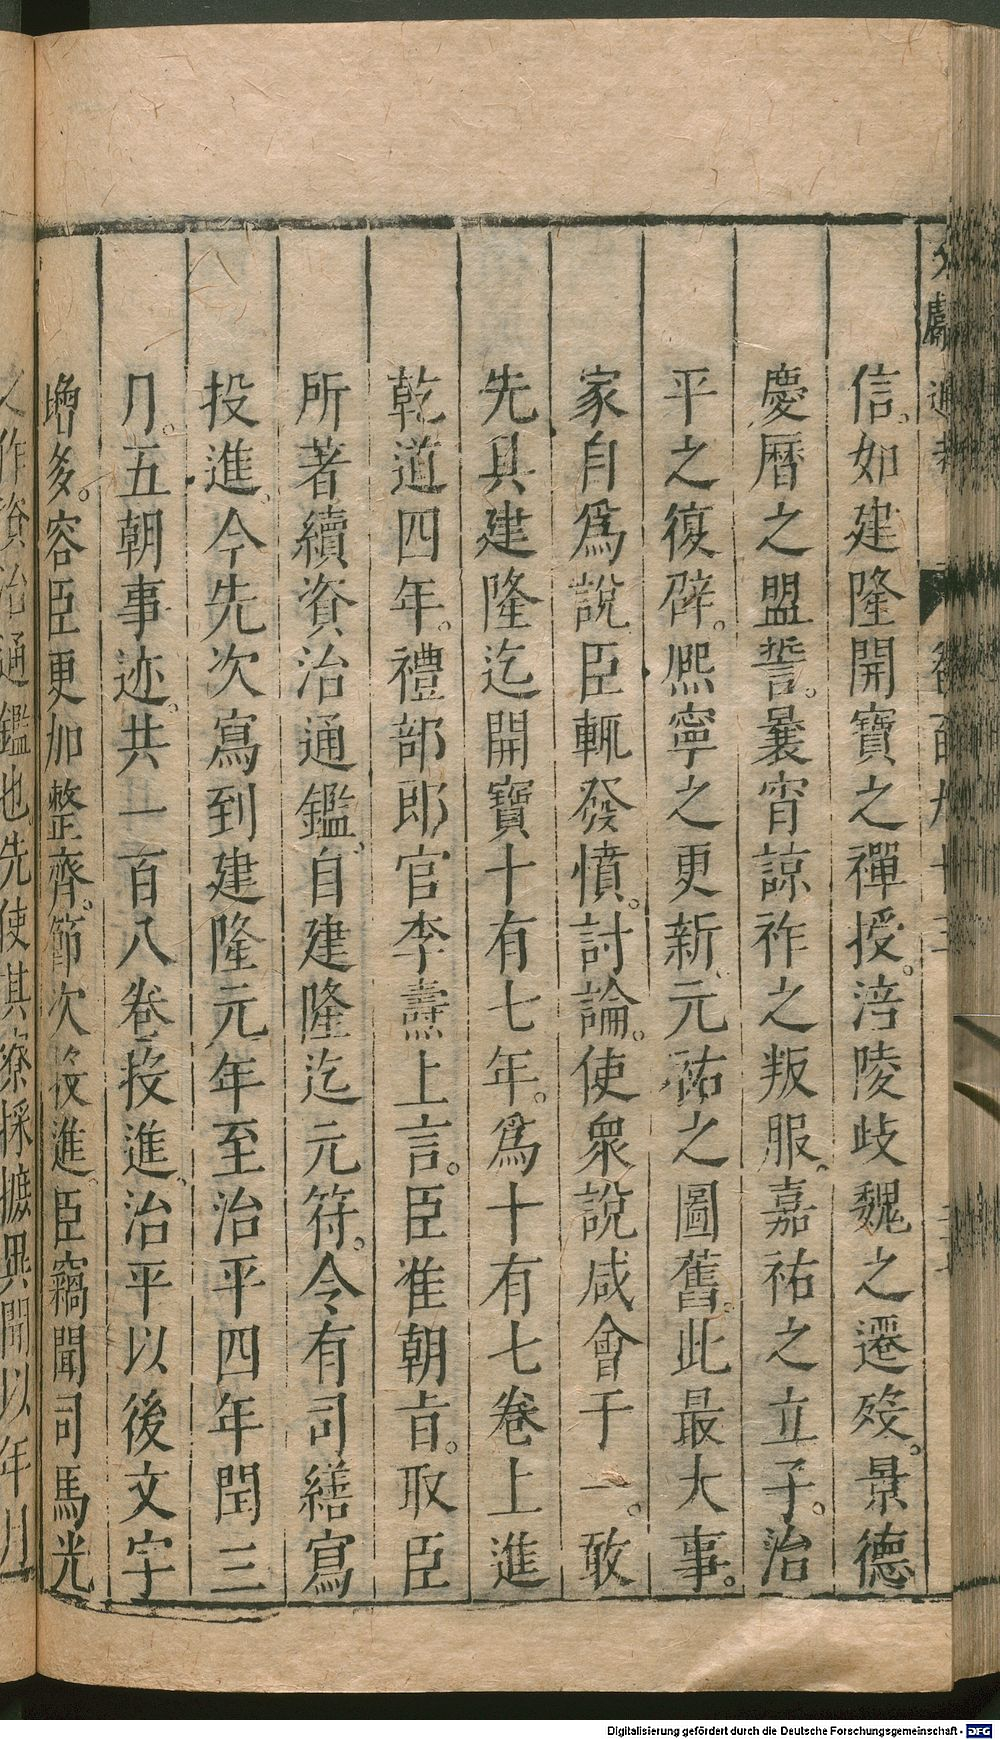 信。如建隆開寶之禪授。涪陵歧魏之遷歿。景德
慶曆之盟誓。曩宵諒祚之叛服。嘉祐之立子。治
平之復辟。熈寧之更新、元祐之圖舊。此最大事。
家自爲說臣輒發憤。討論。使衆說咸會于一。敢
先具建隆迄開寶十有七年。爲十有七卷上進
乾道四年。禮部郎官李燾上言。臣准朝㫖。取臣
所著續資治通鑑、自建隆迄元符。令有司繕寫
投進、今先次寫到建隆元年至治平四年閏三
月。五朝事迹。共一百八卷投進、治平以後文字
增多。容臣更加整齊。節次投進。臣竊聞司馬光
之作資治通鑑也先使其寮採摭異聞以年月
Digitalisierung gefördert durch die Deutsche Forschungsgemeinschaft - DFG